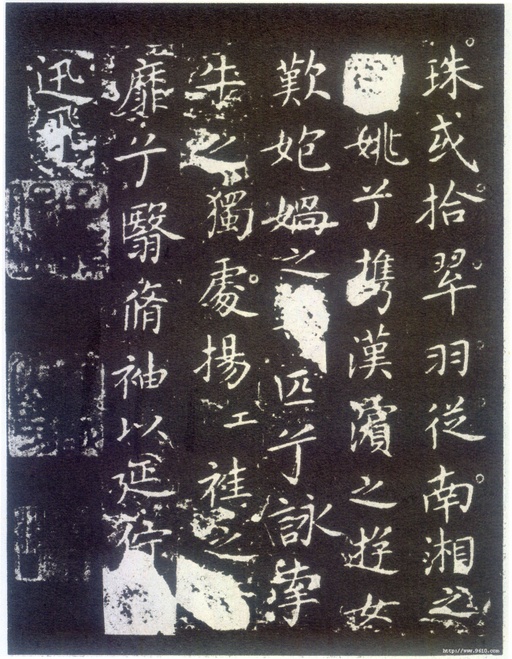 珠或拾翆羽從南湘之
姚兮攜漢濱之遊女
歎㚿媧之匹兮詠牽
牛之獨處揚袿之
靡兮翳脩袖以延佇
迅飛
http://www.9610.com